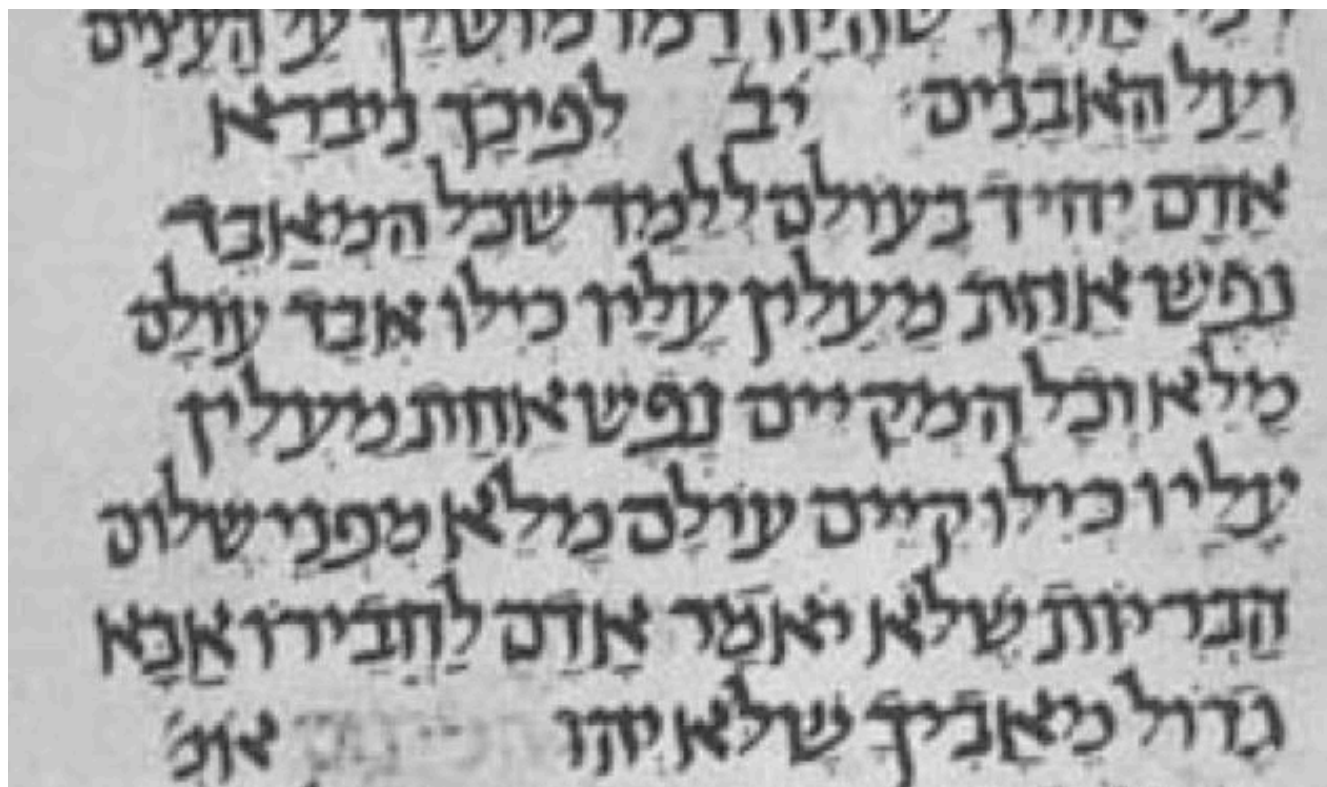 דמי אחיך שהיה דמו מושלך על העצים
ועל האבנים: יב לפיכך ניברא
אדם יחיד בעולם ללמד שכל המאבד
נפש אחת מעלין עליו כילו אבד עולם
מלא וכל המקיים נפש אחת מעלין
עליו כילו קיים עולם מלא מפני שלום
הבריות שלא יאמר אדם לחבירו אבא
גדול מאביך שלא יהו אומ'